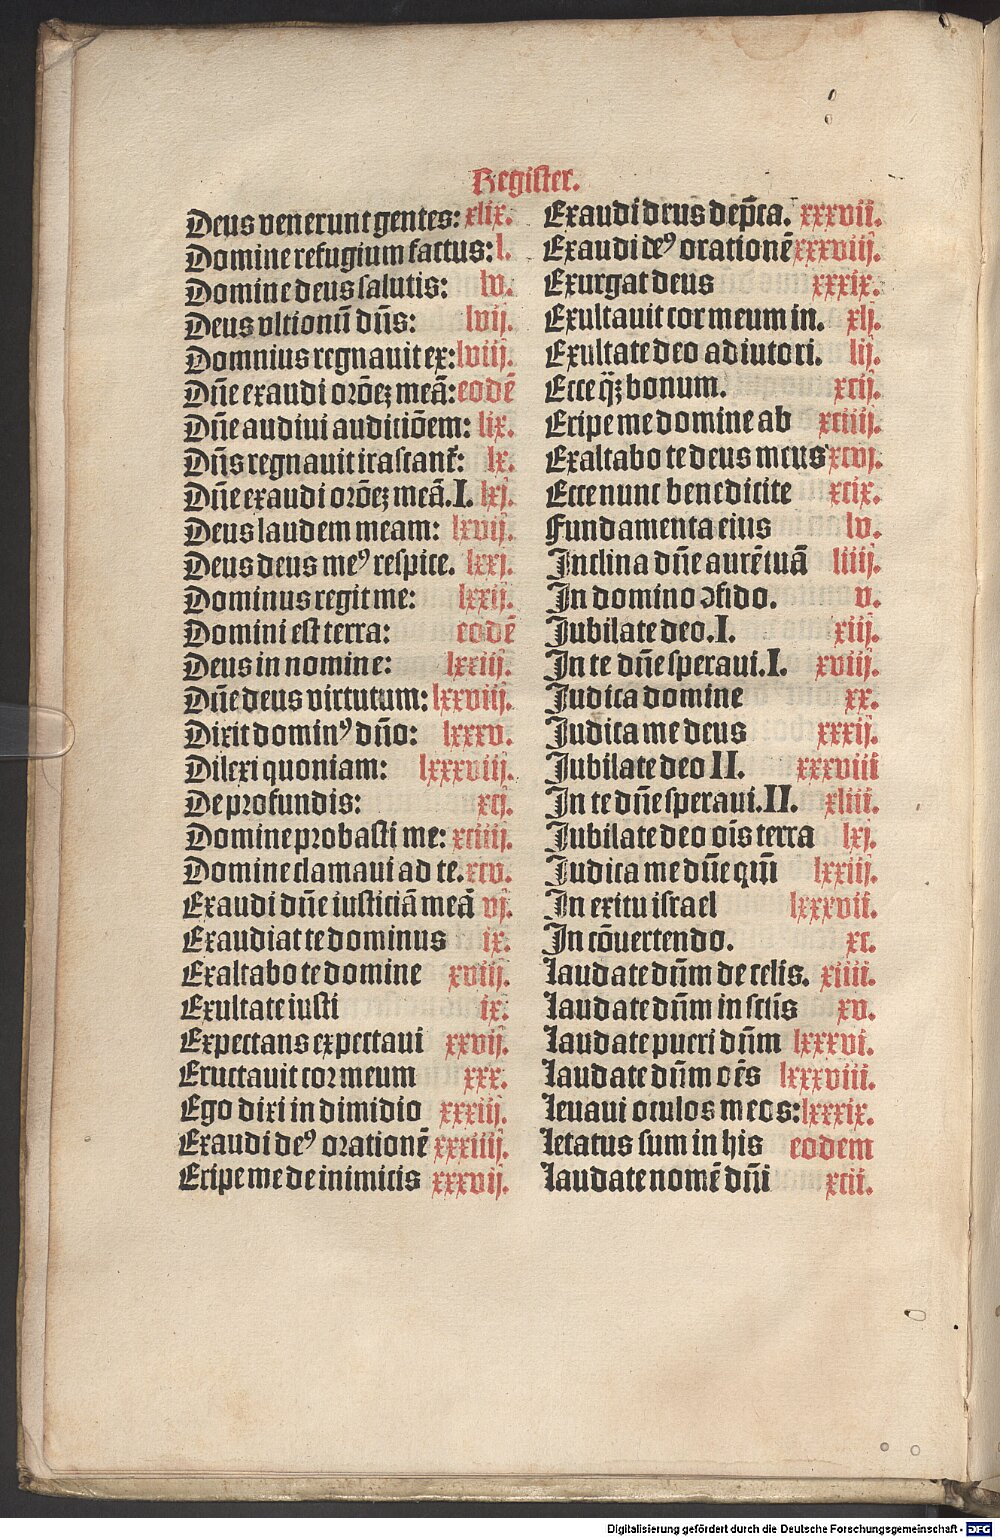 Register.
Deus venerunt gentes: xlix.
Domine refugium factus: l.
Domine deus salutis: lv.
Deus vltionū dn̄s: lvij.
Domnius regnauit ex: lviij.
Dn̄e exaudi orōeꝫ meā: eodē
Dn̄e audiui auditiōem: lix.
Dn̄s regnauit irascant᷑: lx.
Dn̄e exaudi orōeꝫ meā. I. lxj.
Deus laudem meam: lxvij.
Deus deus meꝰ respice. lxxj.
Dominus regit me: lxxij.
Domini est terra: eodē
Deus in nomine: lxxiij.
Dn̄e deus virtutum: lxxviij.
Dixit dominꝰ dn̄o: lxxxv.
Dilexi quoniam: lxxxviij.
De profundis: xcj.
Domine probasti me: xciiij.
Domine clamaui ad te. xcv.
Exaudi dn̄e iusticiā meā vj.
Exaudiat te dominus ix.
Exaltabo te domine xviij.
Exultate iusti ix.
Expectans expectaui xxvij.
Eructauit cor meum xxx.
Ego dixi in dimidio xxxiij.
Exaudi deꝰ orationē xxxiiij.
Eripe me de inimicis xxxvij.
Exaudi deus dep̄ca. xxxvij.
Exaudi deꝰ orationē xxxviij.
Exurgat deus xxxix.
Exultauit cor meum in. xlj.
Exultate deo adiutori. lij.
Ecce q̄ꝫ bonum. xcij.
Eripe me domine ab xciiij.
Exaltabo te deus meus xcvj.
Ecce nunc benedicite xcix.
Fundamenta eius lv.
Inclina dn̄e aurē tuā liiij.
In domino ꝯfido. v.
Jubilate deo. I. xiij.
In te dn̄e speraui. I. xviij.
Judica domine xx.
Judica me deus xxxij.
Jubilate deo II. xxxviii
In te dn̄e speraui. II. xliii.
Jubilate deo oīs terra lxj.
Judica me dn̄e qm̄ lxxiij.
In exitu israel lxxxvii.
In cōuertendo. xc.
Laudate dn̄m de celis. xiiii.
Laudate dn̄m in sct̄is xv.
Laudate pueri dn̄m lxxxvi.
Laudate dn̄m oēs lxxxviii.
Leuaui oculos meos: lxxxix.
Letatus sum in his eodem
Laudate nomē dn̄i xcii.
Digitalisierung gefördert durch die Deutsche Forschungsgemeinschaft - DFG